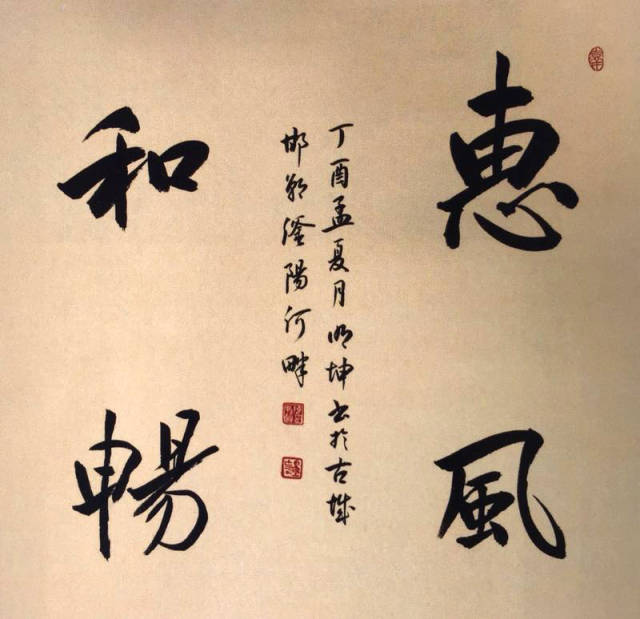 惠風
和暢
丁酉孟夏月明坤书於古城
邯郸滏陽河畔